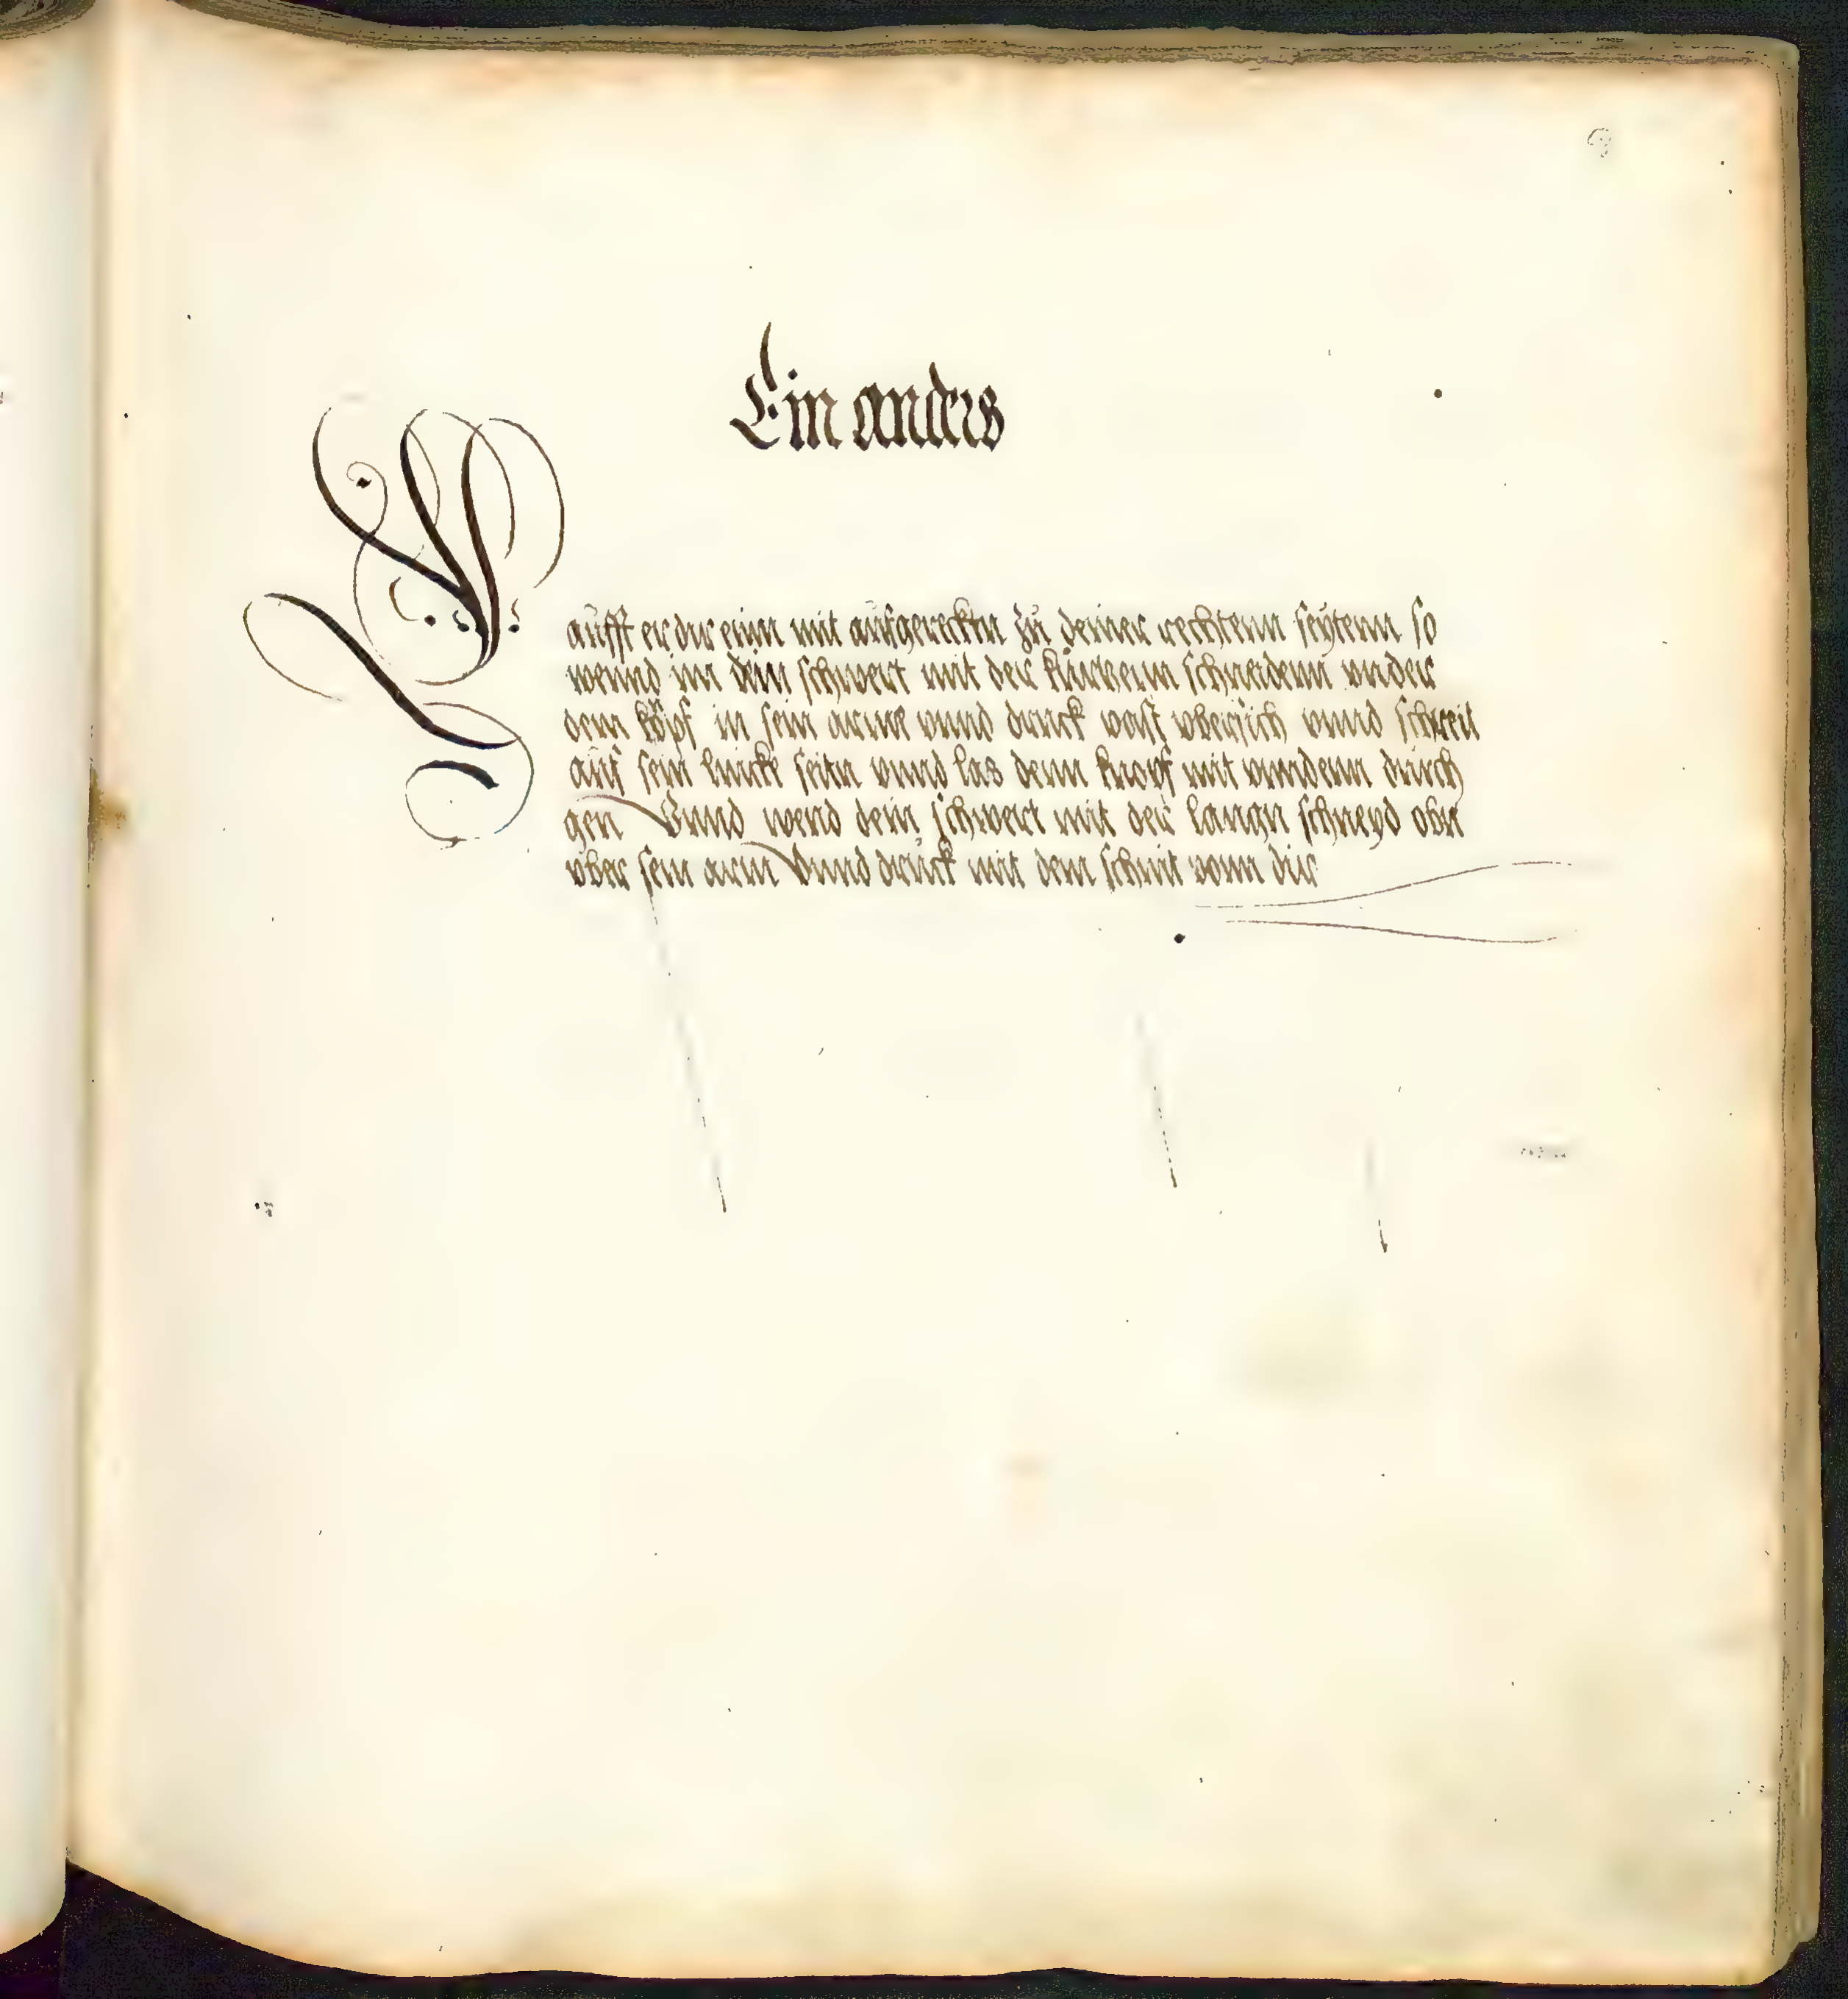 Ein anders
Laufft er dir einn mit aufgerecktn zu deiner rechtenn seytenn so
wennd im dein schwert mit der kurtzenn schneidenn vnder
dem kopf in sein arme vnnd druck vast vbersich vnnd schreit
auf sein lincke seitn vnnd las denn knopf mit vnndenn durch
gen Vnnd wend dein schwert mit der langn schneyd obn
vber sein arm Vnnd druck mit dem schnit vonn dir